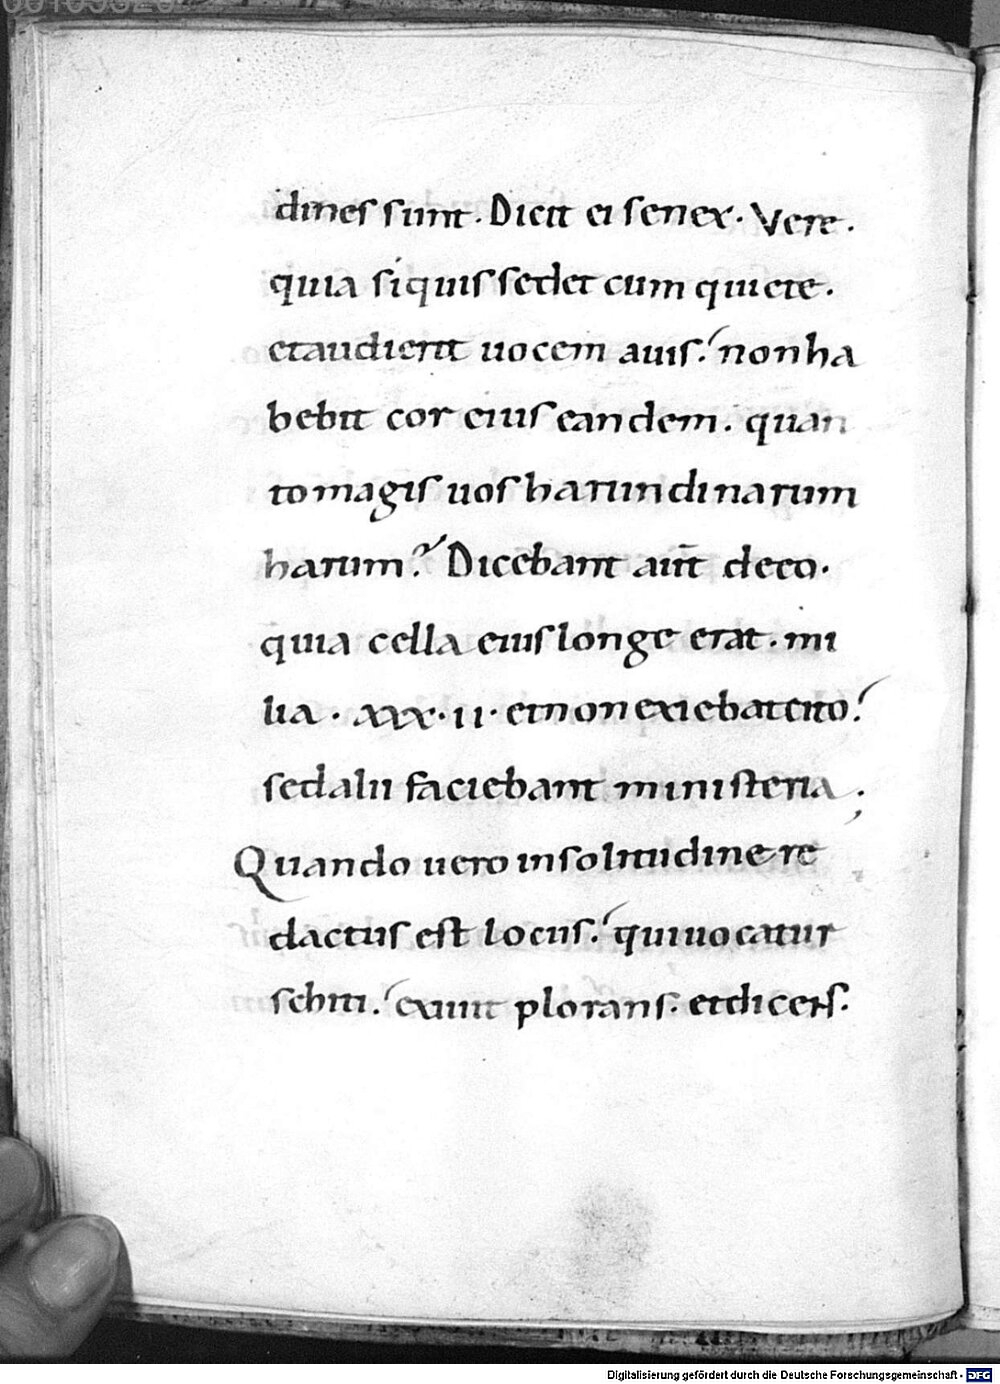 dines sunt. Dicit ei senex. Vere.
quia si quis sedet cum quiete.
et audierit uocem auis. non ha
bebit cor eius eandem. quan
to magis uos harundinarum
harum? Dicebant aut̄ de eo.
quia cella eius longe erat. mi
lia. xxx.ii. et non exiebat cito.
sed alii faciebant ministeria;
Quando uero in solitudine re
dactus est locus. qui uocatur
schiti. exiuit plorans. et dicens.
Digitalisierung gefördert durch die Deutsche Forschungsgemeinschaft - DFG